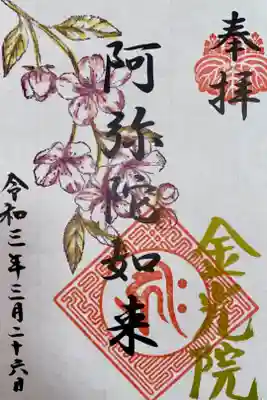 奉拝
阿弥陀如来
金光院
令和三年三月二十六日